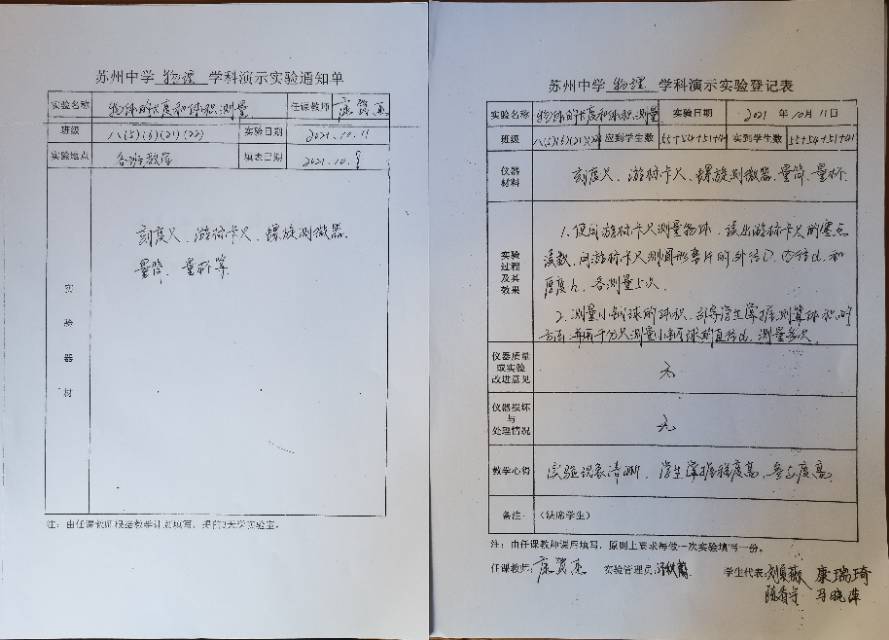 苏州中学 物理 学科演示实验通知单
实验名称 物体的长度和体积测量 任课教师
班级 八(5)(6)(21)(22) 实验日期 2021.10.11
实验地点 各班教室 填表日期 2021.10.9
实验器材
刻度尺、游标卡尺、螺旋测微器
量筒、量杯等
注：由任课教师根据教学计划填写，提前2天学实验室。
苏州中学 物理 学科演示实验登记表
实验名称 物体的长度和体积测量 实验日期 2021 年 10 月 11 日
班级 八(5)(6)(21)(22) 应到学生数 55+54+51+41 实到学生数 55+54+51+41
仪器材料 刻度尺、游标卡尺、螺旋测微器、量筒、量杯.
实验过程及其效果
1. 使用游标卡尺测量物体，读出游标卡尺的零点
读数，用游标卡尺测圆形垫片的外径D、内径d、和
厚度h，各测量5次.
2. 测量小钢球的体积，引导学生掌握测算体积的
方法，并用千分尺测量小钢球的直径d，测量多次.
仪器质量或实验改进意见 无
仪器损坏与处理情况 无
教学心得 实验现象清晰，学生掌握程度高，参与度高.
备注 (缺席学生)
注：由任课教师课后填写，原则上要求每做一次实验填写一份。
任课教师: 实验管理员: 学生代表: 康瑞琦